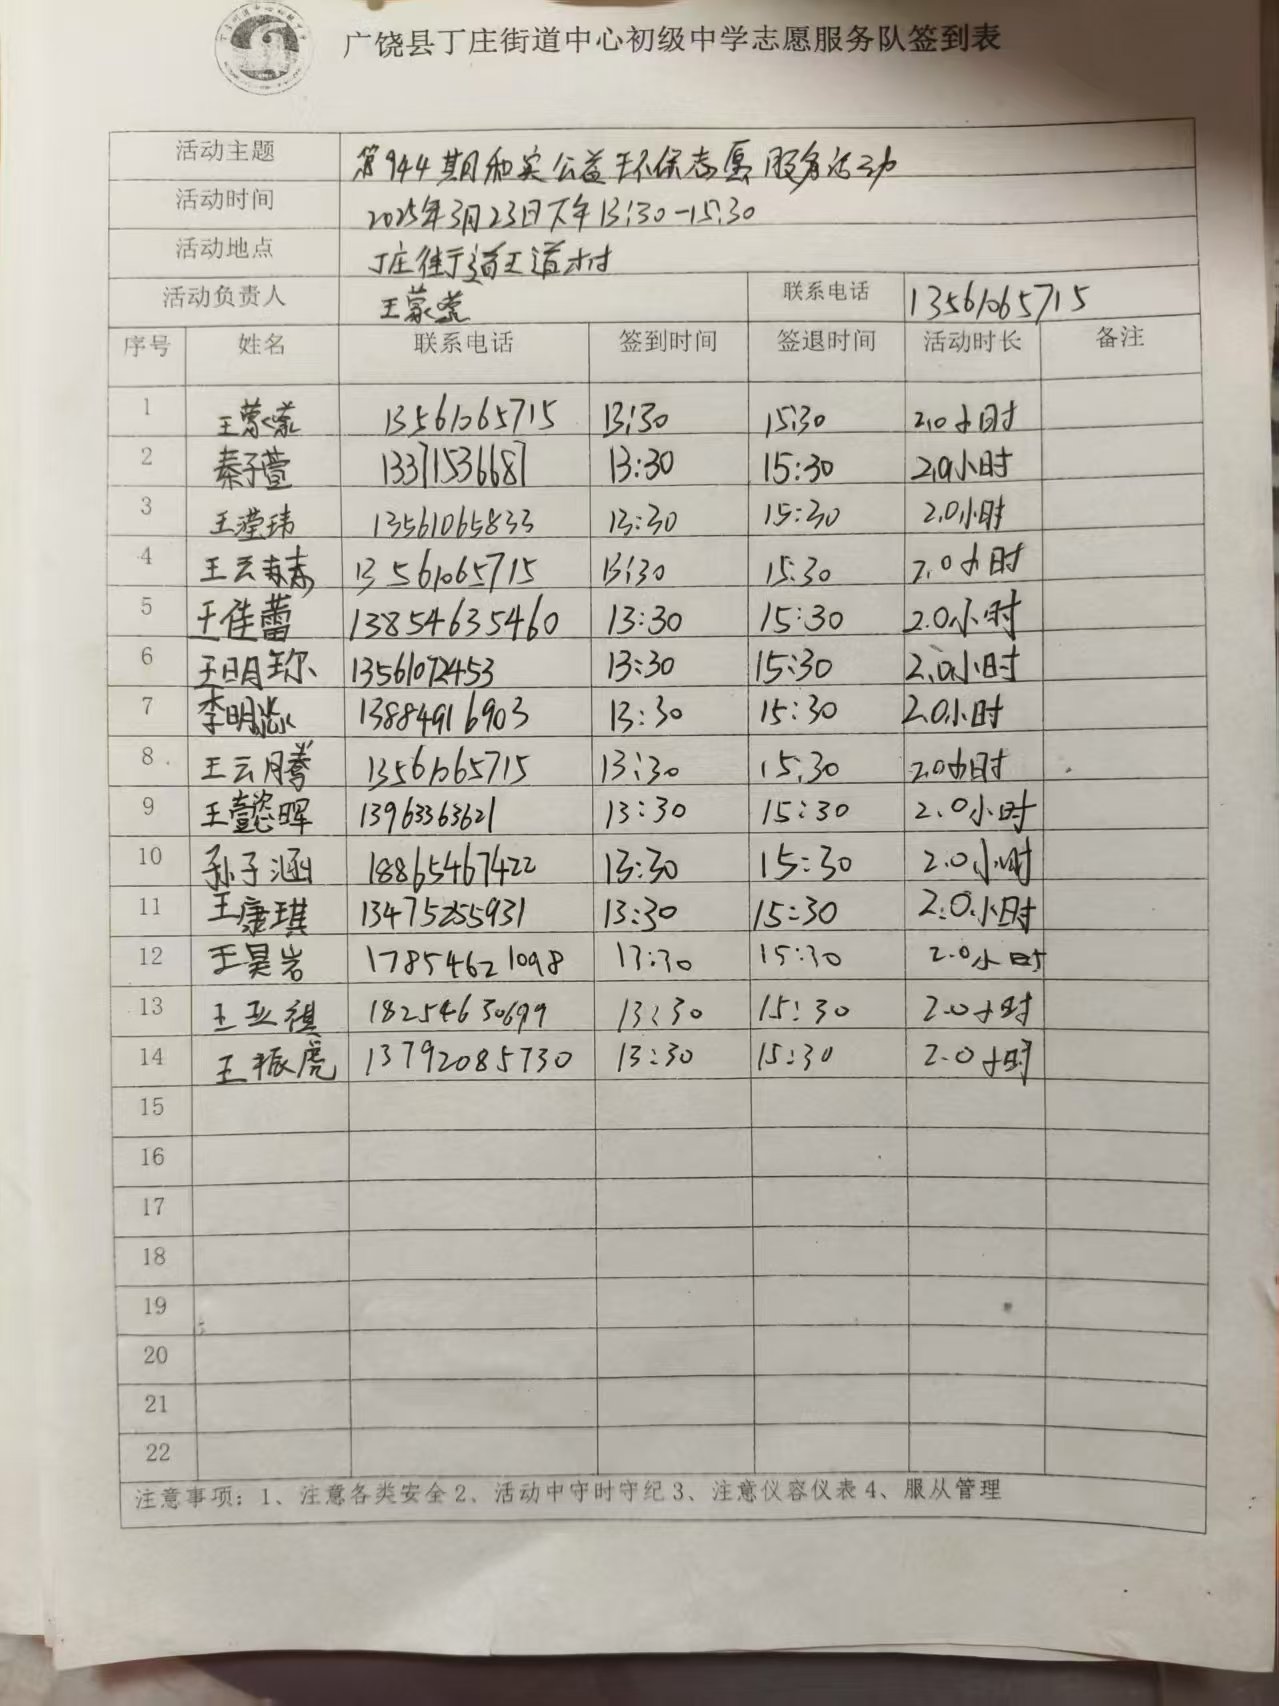 广饶县丁庄街道中心初级中学志愿服务队签到表
活动主题 第944期和实公益环保志愿服务活动
活动时间 2025年3月23日下午13:30-15:30
活动地点 丁庄街道王道村
活动负责人 王蒙蒙 联系电话 13561065715
序号 姓名 联系电话 签到时间 签退时间 活动时长 备注
1 王蒙蒙 13561065715 13:30 15:30 2.0小时
2 秦子萱 13371536687 13:30 15:30 2.0小时
3 王滢玮 13561065833 13:30 15:30 2.0小时
4 王云 13561065715 13:30 15:30 2.0小时
5 王佳蕾 13854635460 13:30 15:30 2.0小时
6 王明珎 13561072453 13:30 15:30 2.0小时
7 李明 13884916903 13:30 15:30 2.0小时
8 王云腾 13561065715 13:30 15:30 2.0小时
9 王懿晖 13963363621 13:30 15:30 2.0小时
10 孙子涵 18865467422 13:30 15:30 2.0小时
11 王康琪 13475255931 13:30 15:30 2.0小时
12 王昊岩 17854621098 13:30 15:30 2.0小时
13 王亚祺 18254630699 13:30 15:30 2.0小时
14 王振虎 13792085730 13:30 15:30 2.0小时
15
16
17
18
19
20
21
22
注意事项：1、注意各类安全2、活动中守时守纪3、注意仪容仪表4、服从管理